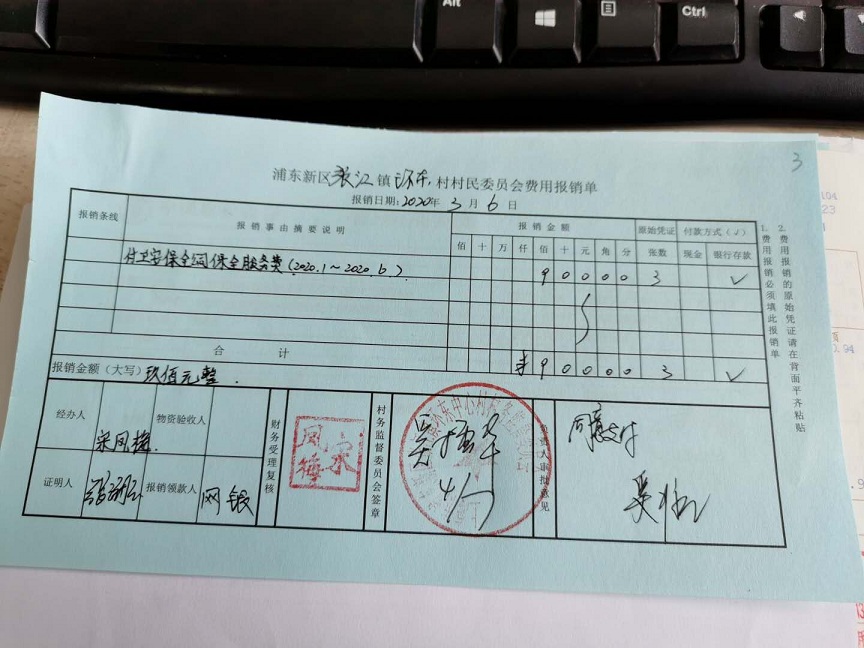 Alt
Ctrl
3
浦东新区张江镇环东村村民委员会费用报销单
报销日期:2020年3月6日
报销条线 报销事由摘要说明 报销金额 原始凭证 付款方式(√)
佰 十 万 仟 佰 十 元 角 分 张数 现金 银行存款
付卫安保全公司保全服务费(2020.1~2020.6) 9 0 0 0 0 3 √
合计 ¥ 9 0 0 0 0 3 √
报销金额(大写) 玖佰元整.
经办人 宋凤梅. 物资验收人
财务受理复核 宋凤梅
村务监督委员会签章
4/7
负责人审批意见 同意支付
证明人 报销领款人 网银
1. 费用报销必须填此报销单
2. 费用报销的原始凭证请在背面平齐粘贴